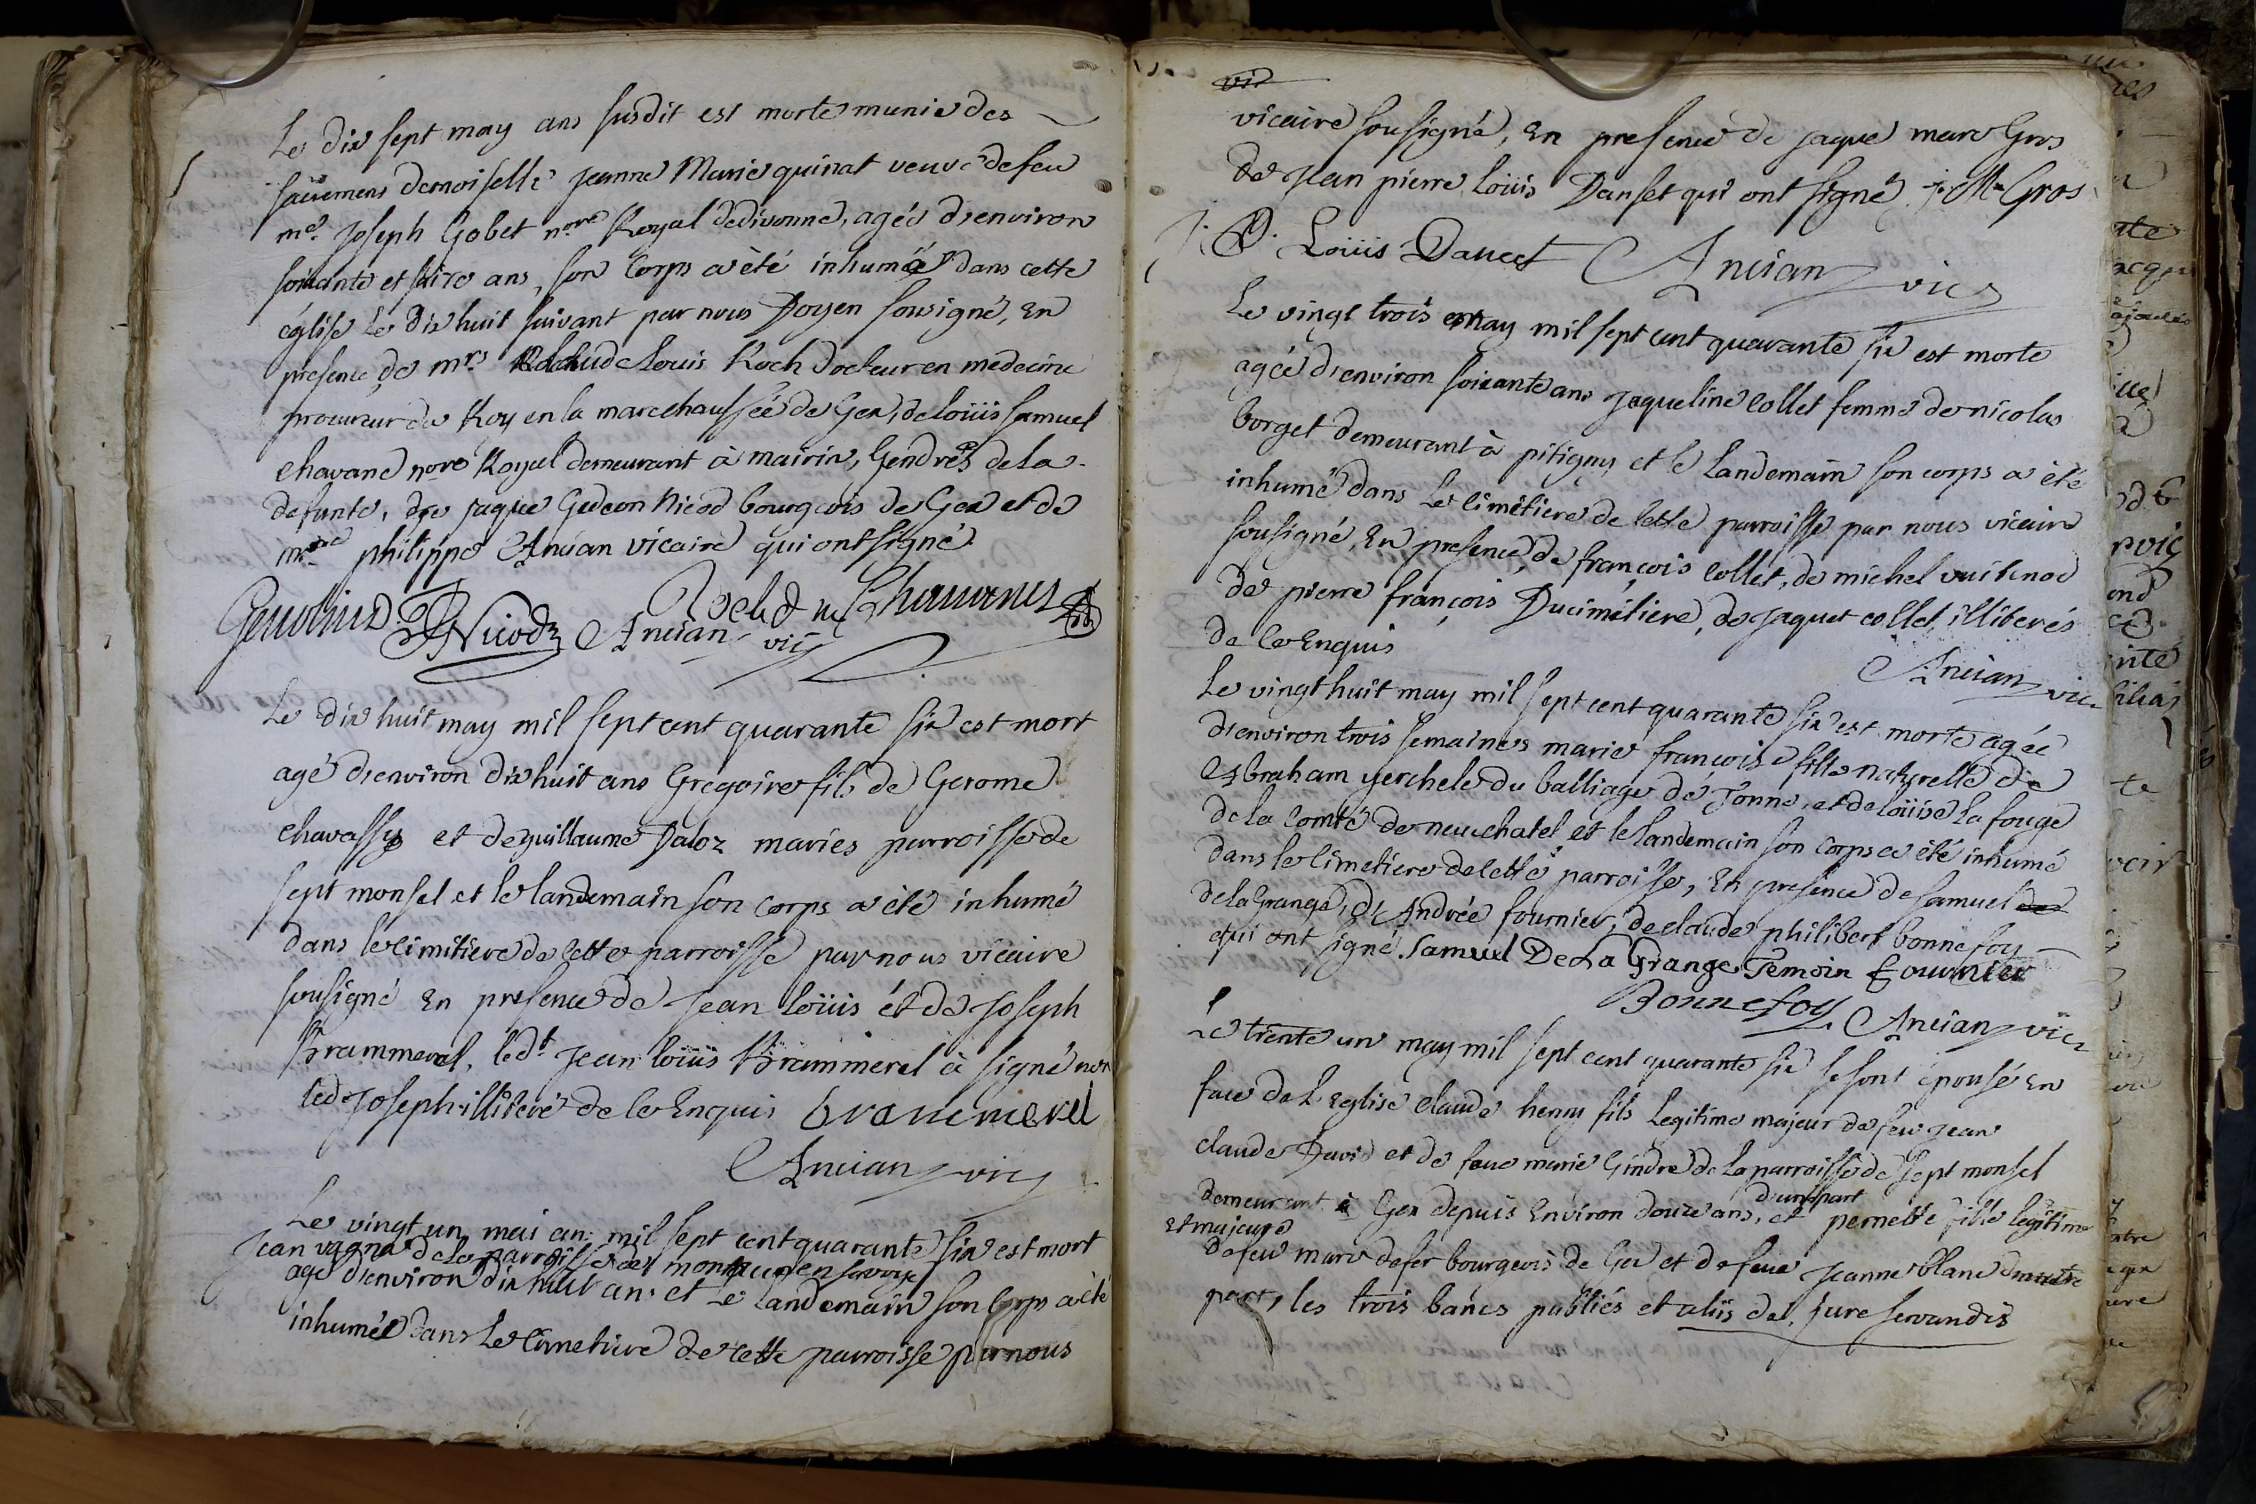 Le dix sept may ans susdit est morte munie des
sacremens demoiselle jeanne Marie quinat veuve de feu
me. Joseph Gobet nore Royal de divonne, agée d'environ
soixante et seize ans, son Corps a èté inhumé dans cette
église Le dix huit suivant par nous Doyen sousigné, En
presence de mrs Claude Louis Roch Docteur en medecine
procureur du Roy en la marechaussée de Gex, de loüis samuel
chavane nore Royal demeurant à mairin, Gendres de la
defunte, de jaque Gedeon Nicod bourgeois de Gex et de
mre philippe Ancian vicaire qui ont signé.
Roch d m Chavanes
Nicod Ancian vic
Le dix huit may mil sept cent quarante six est mort
agé d'environ dix huit ans Gregoire fils de Gerome
chavassy et de guillaume Daloz mariés parroisse de
sept monsel et le landemain son corps a èté inhumé
dans le cimitiere de cette parroisse par nous vicaire
sousigné En presence de Jean loüis ét de Joseph
Brammerel, ledt Jean loüis Brammerel à signé non
led Joseph illiteré de ce Enquis brammerel
Ancian vic
Le vingt un mai an mil sept cent quarante six est mort
Jean vagnie de la parroisse de en savoye
agé d'environ dix huit ans et Le landemain son Corps a èté
inhumée dans Le Cimetiere de cette parroisse par nous
vic
vicaire sousigné, En presence de jaque marc Gros
de Jean pierre Loüis Danset qui ont signé. J: M Gros
J: P: Loüis Dancet Ancian vic
Le vingt trois may mil sept cent quarante six est morte
agée d'environ soixante ans Jaqueline Collet femme de nicolas
borget demeurant à pitigny et le landemain son corps a èté
inhumé dans Le cimitiere de cette parroisse par nous vicaire
sousigné, En presence de françois Collet, de michel
de pierre françois Ducimetiere, de jaques collet illiterés
de ce Enquis
Ancian vic
Le vingt huit may mil sept cent quarante six est morte agée
d'environ trois semaines marie françoise fille naturelle de
Abraham yerchele du balliage de Tonne, et de loüise la fouge
de la Comté de neuchatel et le landemain son Corps a èté inhumé
dans le Cimetiere de cette parroisse, En presence de samuel de
de la Grange, d'Andrée fournier, de claude philibert bonnefoy
qui ont signé. Samuel De La Grange Temoin Fournier
Bonnefoy Ancian vic
Le trente un may mil sept cent quarante six se sont épousé En
face de L'Eglise Claude henry fils Legitime majeur de feu Jean
Claude David et de feue marie Gindre de la parroisse de sept monsel
d'une part
demeurant à Gex depuis Environ douze ans, et pernette fille legitime
et majeure
de feu marc defer bourgeois de Gex et de feue Jeanne blanc d'autre
part, les trois bancs publiés et aliis de jure servandis